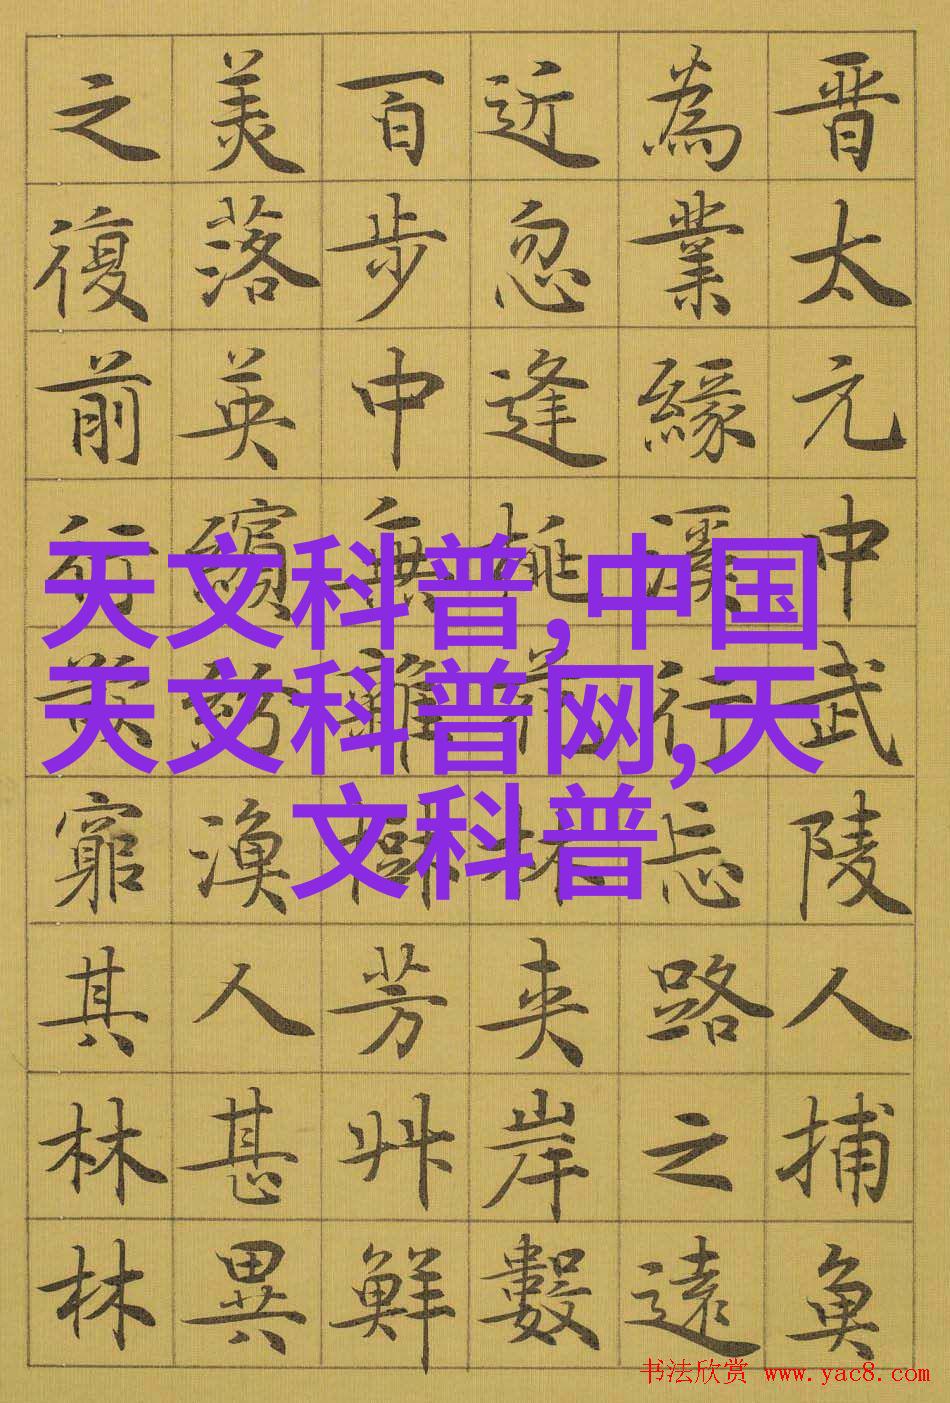 晋太元中武陵人捕魚
為業緣溪行忘路之遠
近忽逢桃花林夹岸數
百步中無雜樹芳艸鮮
美落英繽紛漁人甚異
之復前行欲窮其林林
天文科普,中国
天文科普网,天
文科普
书法欣赏 www.yac8.com